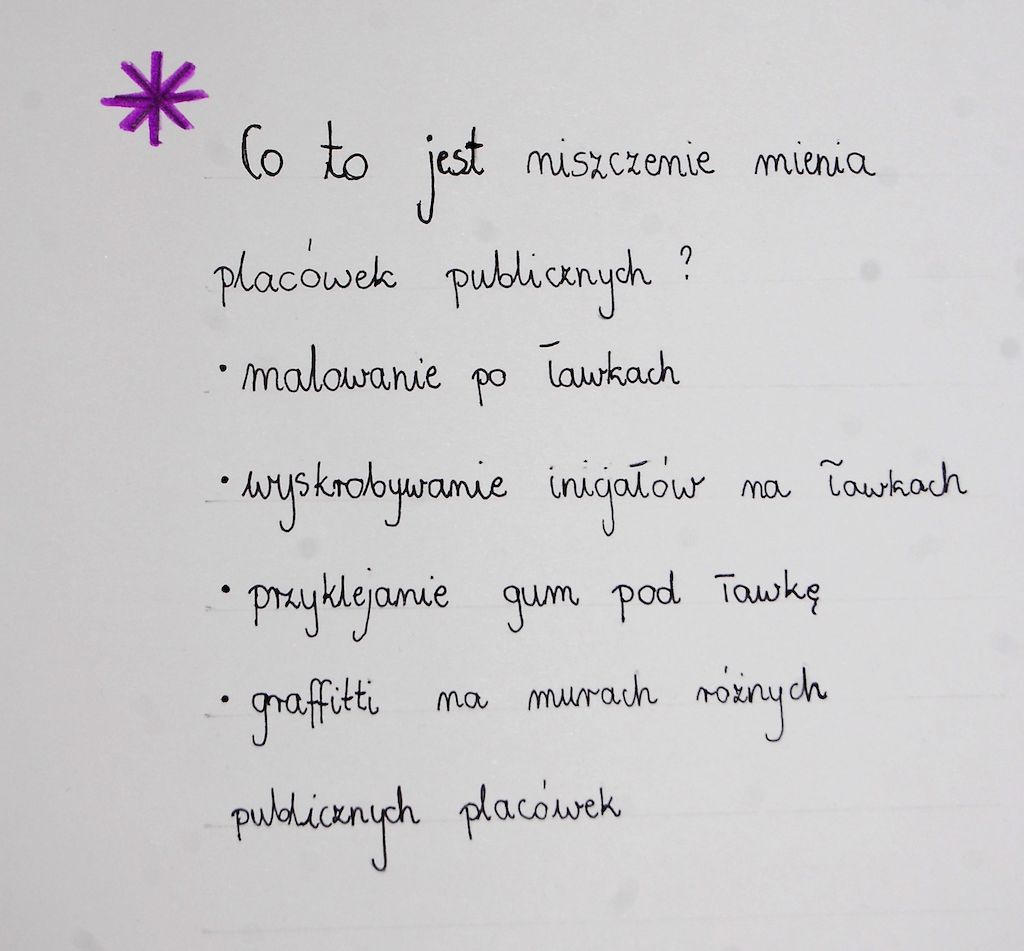 Co to jest niszczenie mienia
placówek publicznych ?
• malowanie po ławkach
• wyskrobywanie inicjałów na ławkach
• przyklejanie gum pod ławkę
• graffitti na murach różnych
publicznych placówek